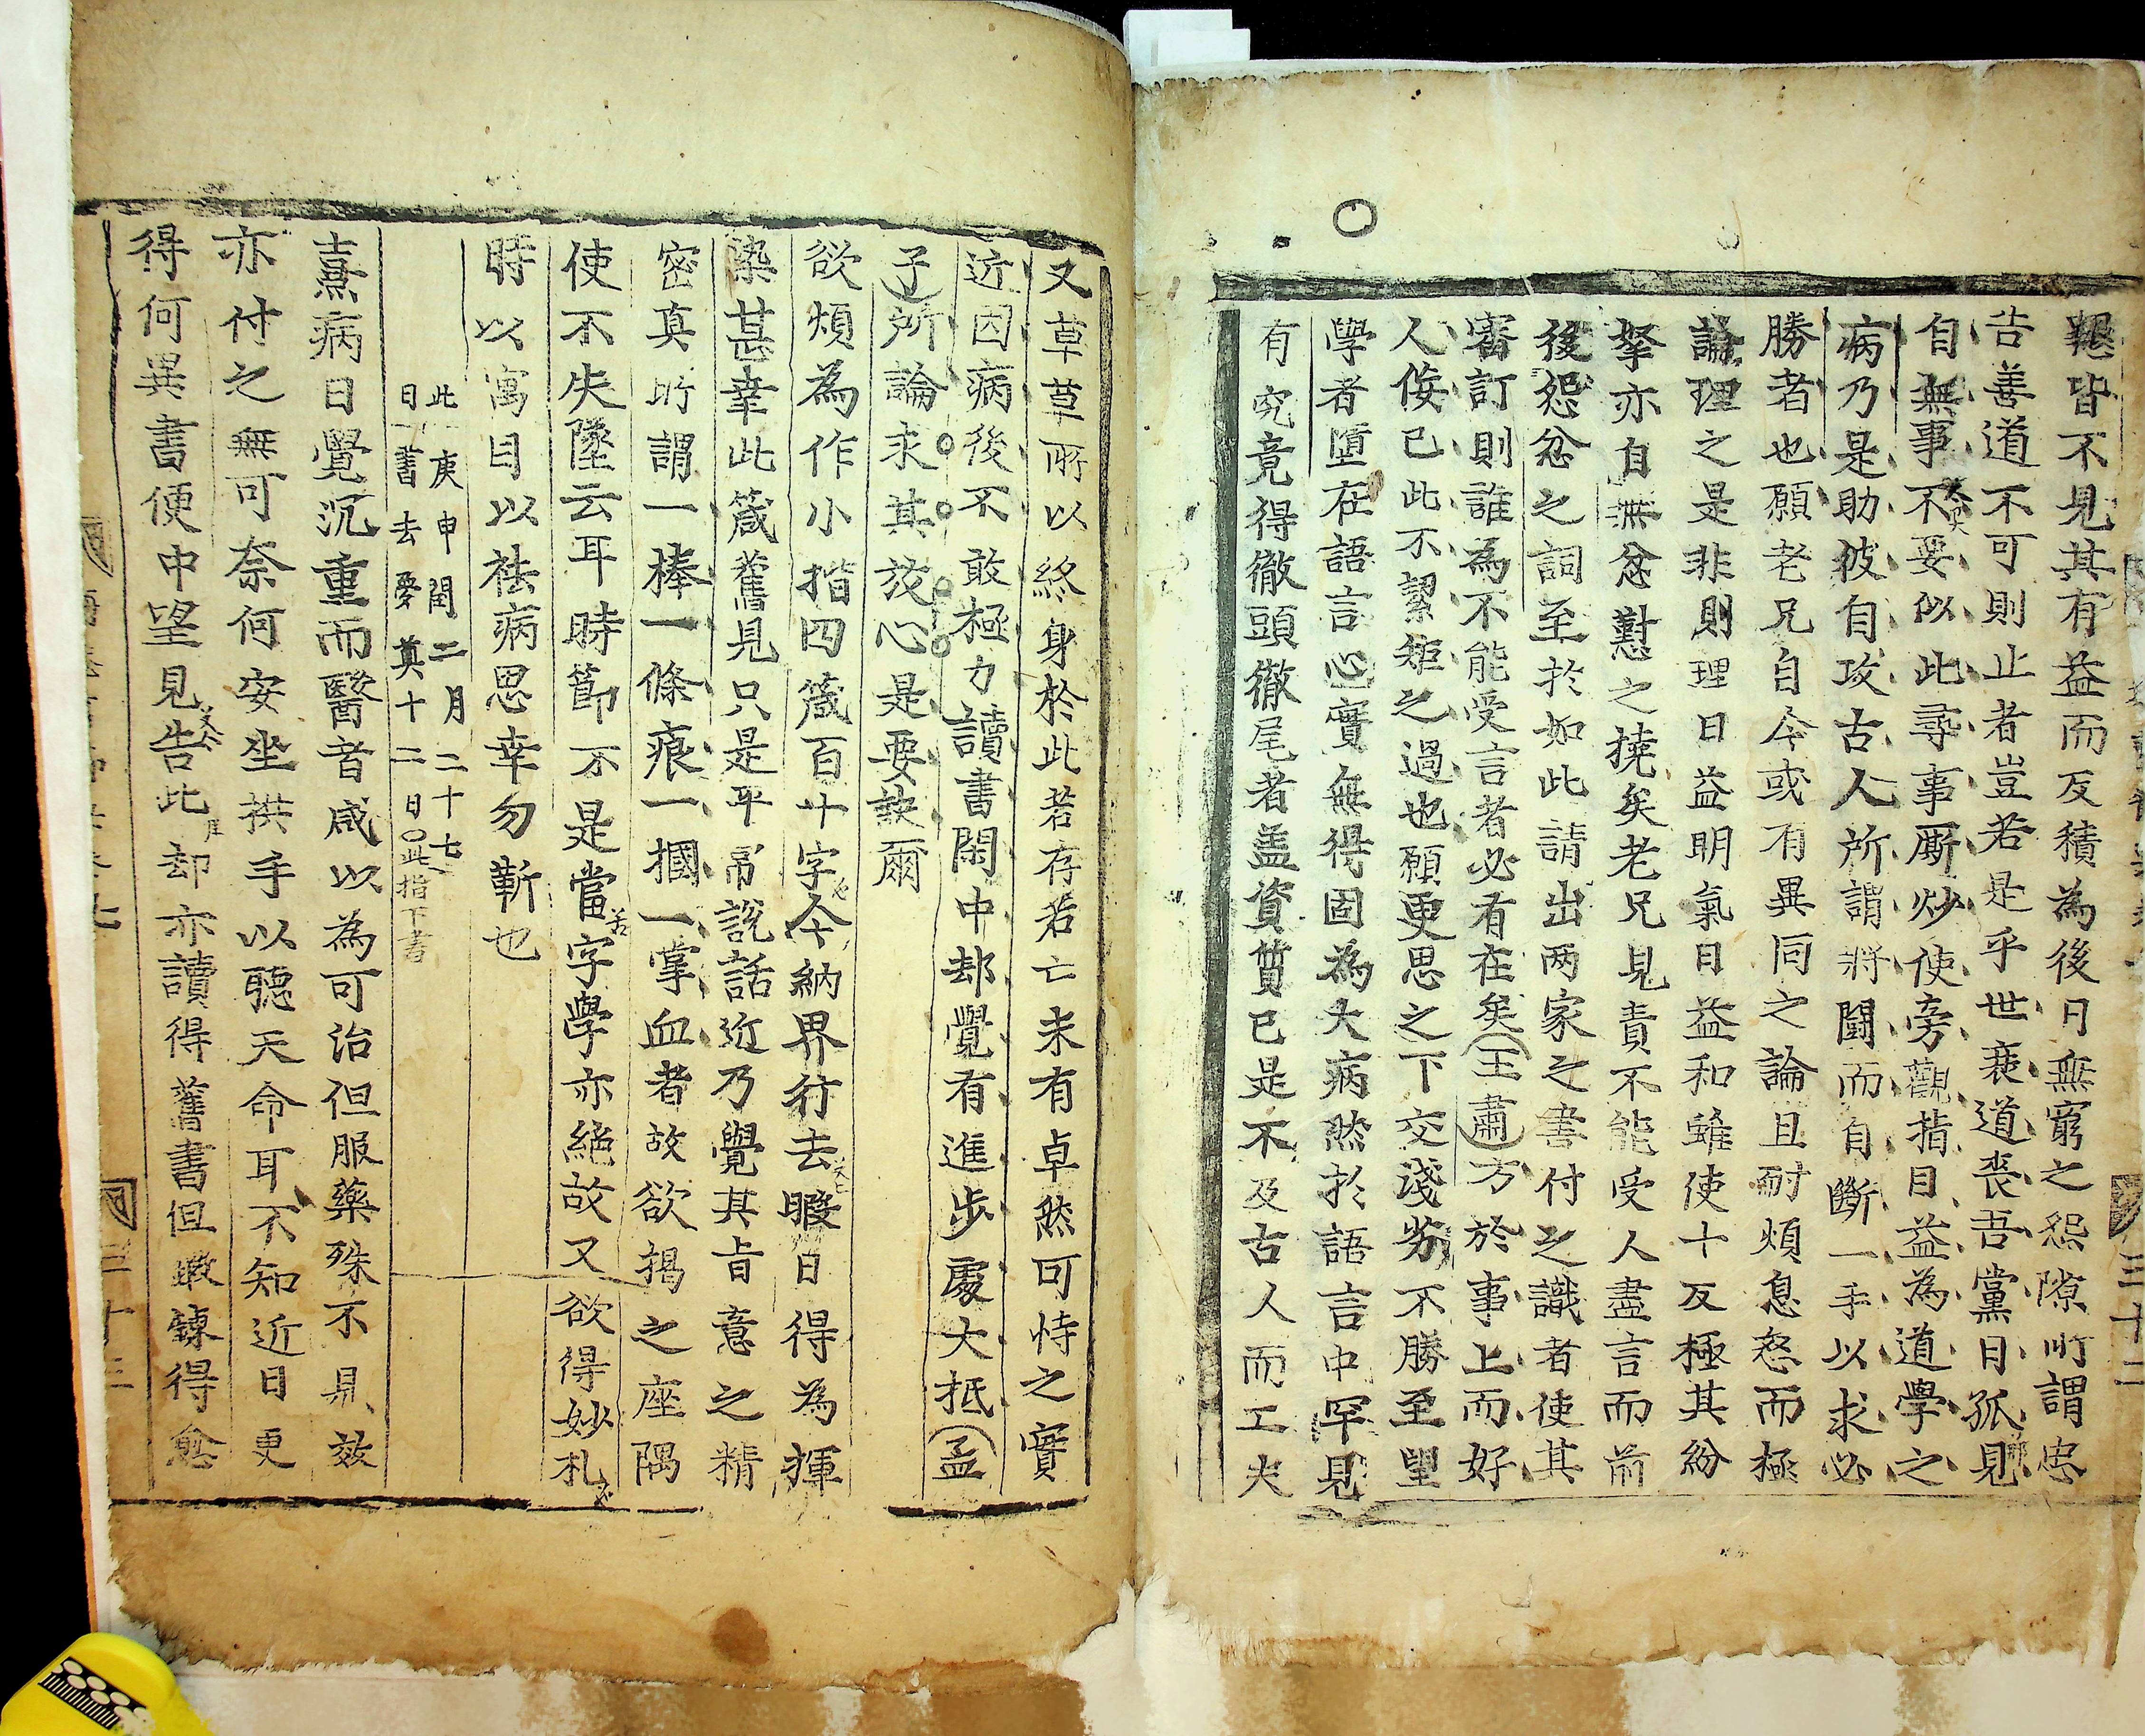 懇皆不見其有益而反積為後日無窮之怨隙所謂忠
告善道不可則止者豈若是乎世衰道喪吾黨日孤見
自無事不要似此尋事厮炒使旁觀指目益為道學之
病乃是助彼自攻古人所謂將鬪而自斷一手以求必
勝者也願老兄自今或有異同之論且耐煩息怒而極
論理之是非則理日益明氣日益和雖使十反極其紛
拏亦自無忿懟之撓矣老兄見責不能受人盡言而前
後怨忿之詞至於如此請出兩家之書付之識者使其
審訂則誰為不能受言者必有在矣王肅方於事上而好
人佞己此不絜矩之過也願更思之下交淺劣不勝至望
學者墮在語言心實無得固為大病然於語言中罕見
有究竟得徹頭徹尾者盖資質已是不及古人而工夫
又草草所以終身於此若存若亡未有卓然可恃之實
近因病後不敢極力讀書閑中却覺有進步處大抵孟
子所論求其放心是要訣爾
欲煩為作小楷四箴百卄字今納界行去暇日得為揮
染甚幸此箴舊見只是平常說話近乃覺其旨意之精
密真所謂一棒一條痕一摑一掌血者故欲揭之座隅
使不失墜云耳時節不是當字學亦絕故又欲得妙札
時以寓目以祛病思幸勿靳也
此庚申閏二月二十七
日書去夢奠十二日○此指下書
熹病日覺沉重而醫者咸以為可治但服藥殊不見效
亦付之無可奈何安坐拱手以聽天命耳不知近日更
得何異書便中望見告此却亦讀得舊書但鍛鍊得愈
三十二
三十三